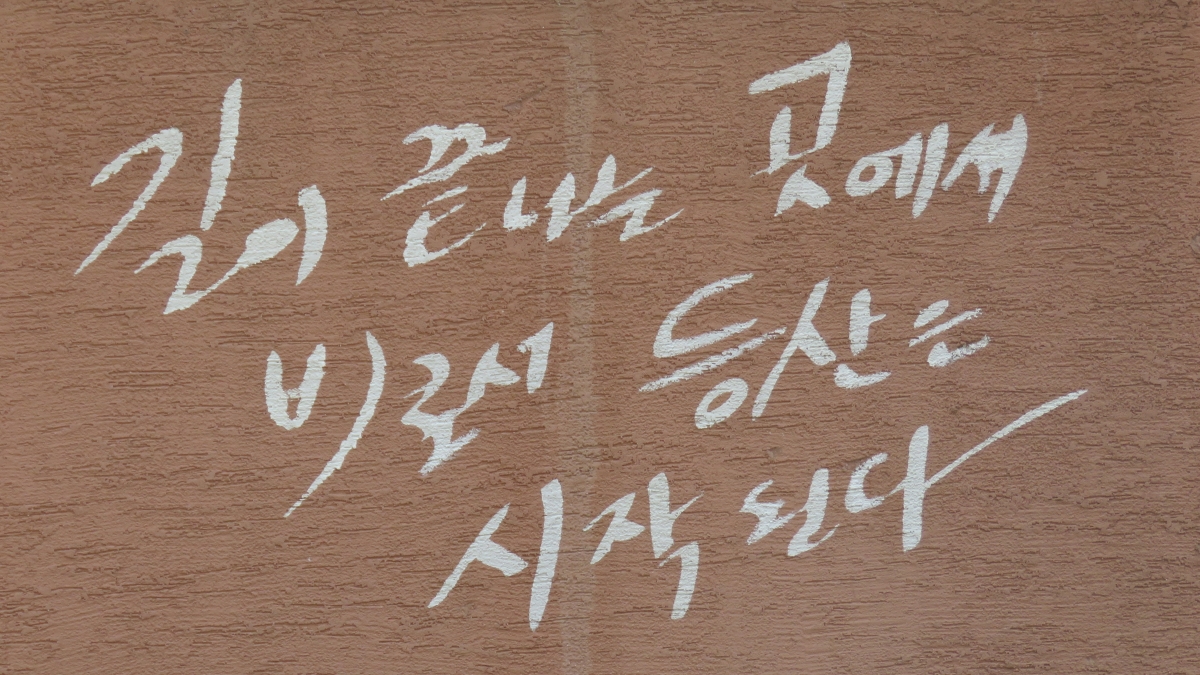 길이 끝나는 곳에서
비로서 등산은
시작 된다